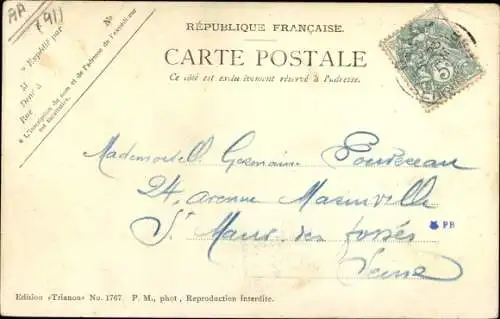 AP
1911
RÉPUBLIQUE FRANÇAISE.
CARTE POSTALE
Ce côté est exclusivement réservé à l'adresse.
Expédié par
M
Dem<sup>t</sup> à
Rue
N°
* L'inscription du nom et de l'adresse de l'expéditeur
est facultative.
5
Mademoiselle Germaine
24, avenue Maseville
St Maur des fossés
Seine
PB
Edition «Trianon» No. 1767. P. M., phot, Reproduction interdite.